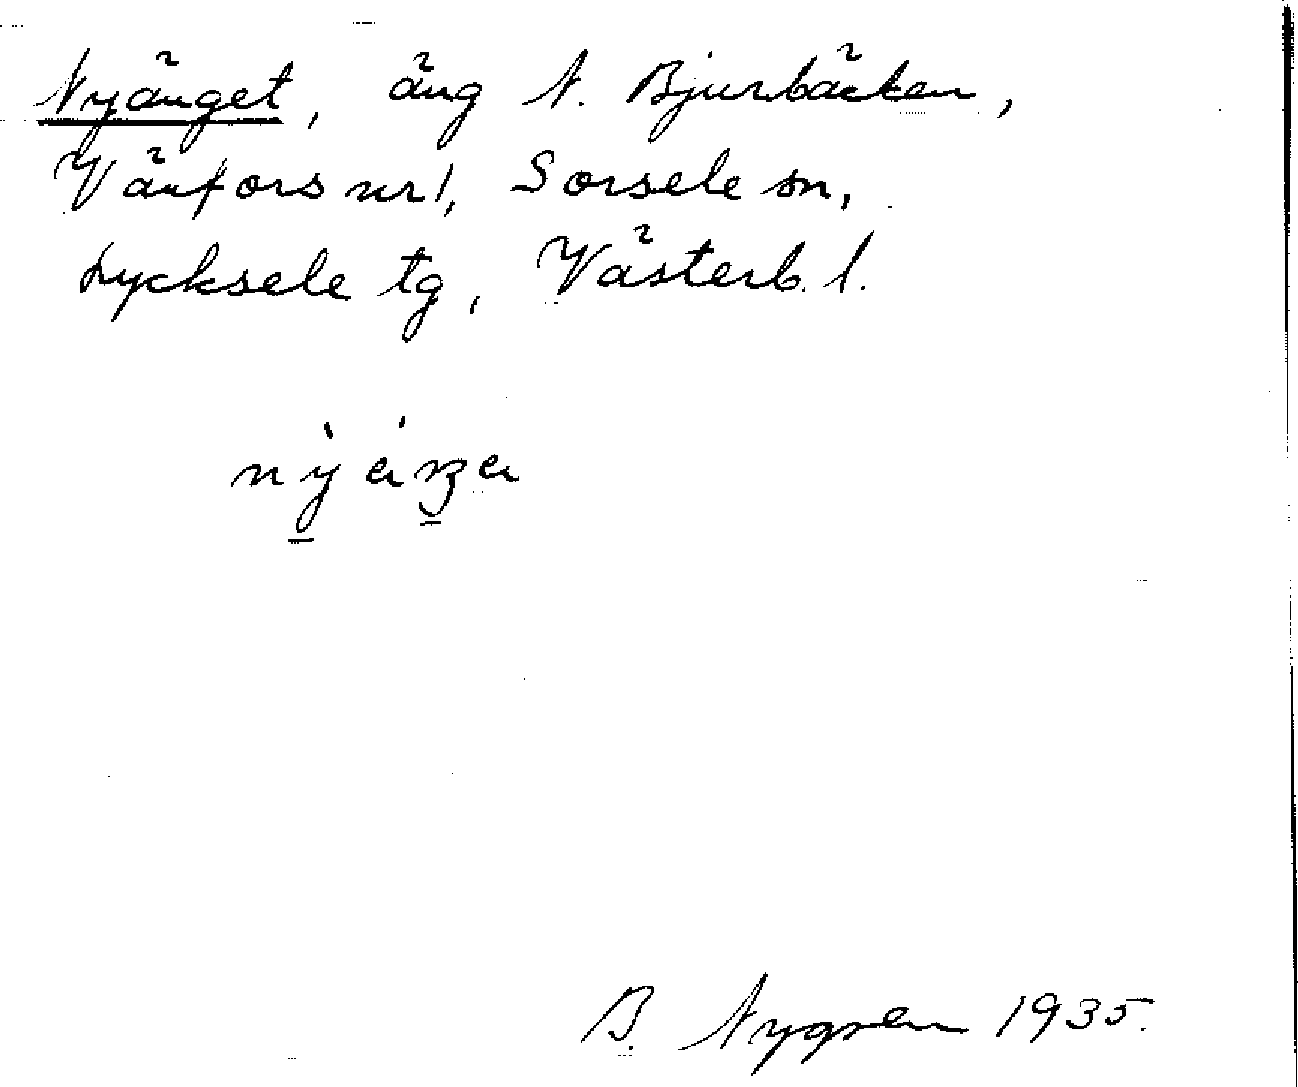 Nyänget, äng N. Bjurbäcken,
Vänfors nr 1, Sorsele sn,
Lycksele tg, Västerb. l.
B. Nygren 1935.